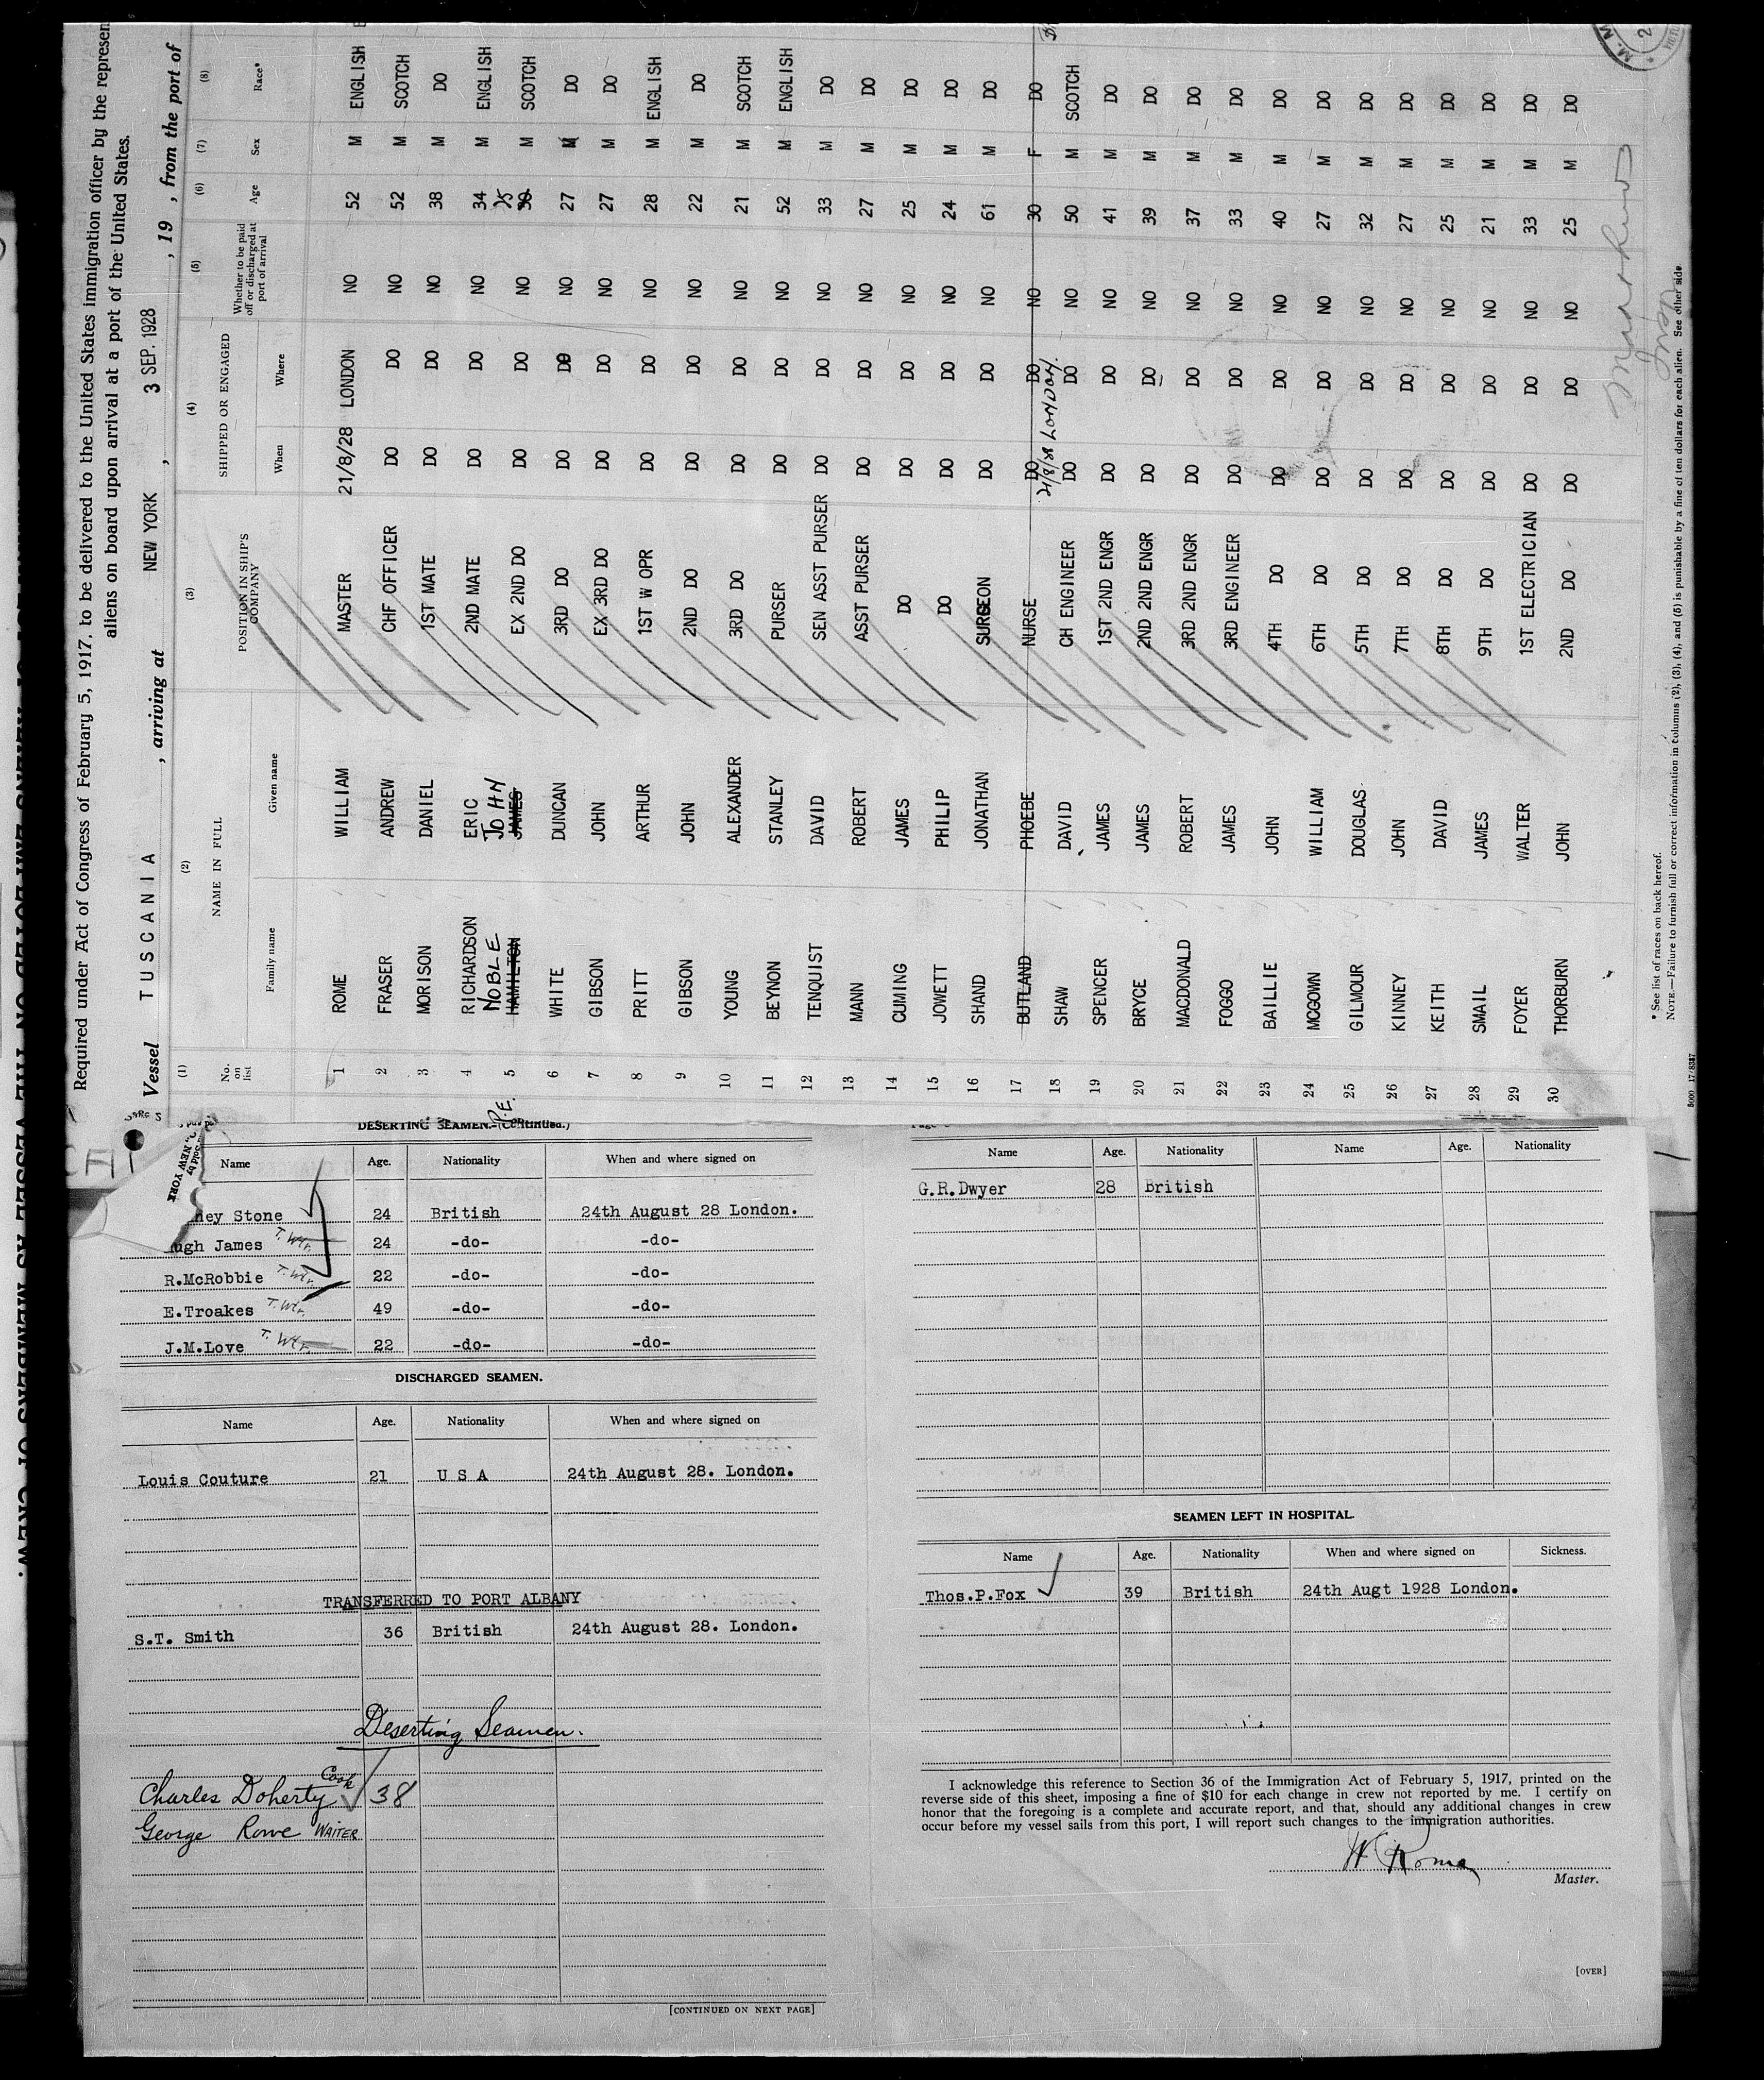 Required under Act of Congress of February 5, 1917, to be delivered to the United States immigration officer by the represen
aliens on board upon arrival at a port of the United States.
Vessel TUSCANIA , arriving at NEW YORK , 3 SEP. 1928 , 19 , from the port of
(1) (2) (3) (4) (5) (6) (7) (8)
No. on list NAME IN FULL POSITION IN SHIP'S COMPANY SHIPPED OR ENGAGED Whether to be paid off or discharged at port of arrival Age Sex Race*
Family name Given name When Where
1 ROME WILLIAM MASTER 21/8/28 LONDON NO 52 M ENGLISH
2 FRASER ANDREW CHF OFFICER DO DO NO 52 M SCOTCH
3 MORISON DANIEL 1ST MATE DO DO NO 38 M DO
4 RICHARDSON ERIC 2ND MATE DO DO NO 34 M ENGLISH
NOBLE JOHN 25
5 HAMILTON JAMES EX 2ND DO DO DO NO 30 M SCOTCH
P.E.
6 WHITE DUNCAN 3RD DO DO DO NO 27 M DO
7 GIBSON JOHN EX 3RD DO DO DO NO 27 M DO
8 PRITT ARTHUR 1ST W OPR DO DO NO 28 M ENGLISH
9 GIBSON JOHN 2ND DO DO DO NO 22 M DO
10 YOUNG ALEXANDER 3RD DO DO DO NO 21 M SCOTCH
11 BEYNON STANLEY PURSER DO DO NO 52 M ENGLISH
12 TENQUIST DAVID SEN ASST PURSER DO DO NO 33 M DO
13 MANN ROBERT ASST PURSER DO DO NO 27 M DO
14 CUMING JAMES DO DO DO NO 25 M DO
15 JOWETT PHILIP DO DO DO NO 24 M DO
16 SHAND JONATHAN SURGEON DO DO NO 61 M DO
17 BUTLAND PHOEBE NURSE DO DO NO 30 F DO
21/8/28 LONDON.
18 SHAW DAVID CH ENGINEER DO DO NO 50 M SCOTCH
19 SPENCER JAMES 1ST 2ND ENGR DO DO NO 41 M DO
20 BRYCE JAMES 2ND 2ND ENGR DO DO NO 39 M DO
21 MACDONALD ROBERT 3RD 2ND ENGR DO DO NO 37 M DO
22 FOGGO JAMES 3RD ENGINEER DO DO NO 33 M DO
23 BAILLIE JOHN 4TH DO DO DO NO 40 M DO
24 MCGOWN WILLIAM 6TH DO DO DO NO 27 M DO
25 GILMOUR DOUGLAS 5TH DO DO DO NO 32 M DO
26 KINNEY JOHN 7TH DO DO DO NO 27 M DO
27 KEITH DAVID 8TH DO DO DO NO 25 M DO
28 SMAIL JAMES 9TH DO DO DO NO 21 M DO
29 FOYER WALTER 1ST ELECTRICIAN DO DO NO 33 M DO
30 THORBURN JOHN 2ND DO DO DO NO 25 M DO
* See list of races on back hereof.
NOTE.—Failure to furnish full or correct information in columns (2), (3), (4), and (5) is punishable by a fine of ten dollars for each alien. See other side
5000 17/8337
Sold by
NEW YORK
DESERTING SEAMEN.-(Continued.)
Name Age. Nationality When and where signed on
ney Stone 24 British 24th August 28 London.
ugh James T. Wtr. 24 -do- -do-
R.McRobbie T. Wtr. 22 -do- -do-
E.Troakes T. Wtr. 49 -do- -do-
J.M.Love T. Wtr. 22 -do- -do-
DISCHARGED SEAMEN.
Name Age. Nationality When and where signed on
Louis Couture 21 U S A 24th August 28. London.
TRANSFERRED TO PORT ALBANY
S.T. Smith 36 British 24th August 28. London.
Deserting Seamen.
Charles Doherty Cook 38
George Rowe WAITER
[CONTINUED ON NEXT PAGE]
Name Age. Nationality Name Age. Nationality
G.R.Dwyer 28 British
SEAMEN LEFT IN HOSPITAL.
Name Age. Nationality When and where signed on Sickness.
Thos.P.Fox 39 British 24th Augt 1928 London.
I acknowledge this reference to Section 36 of the Immigration Act of February 5, 1917, printed on the
reverse side of this sheet, imposing a fine of $10 for each change in crew not reported by me. I certify on
honor that the foregoing is a complete and accurate report, and that, should any additional changes in crew
occur before my vessel sails from this port, I will report such changes to the immigration authorities.
W Rome
Master.
[OVER]